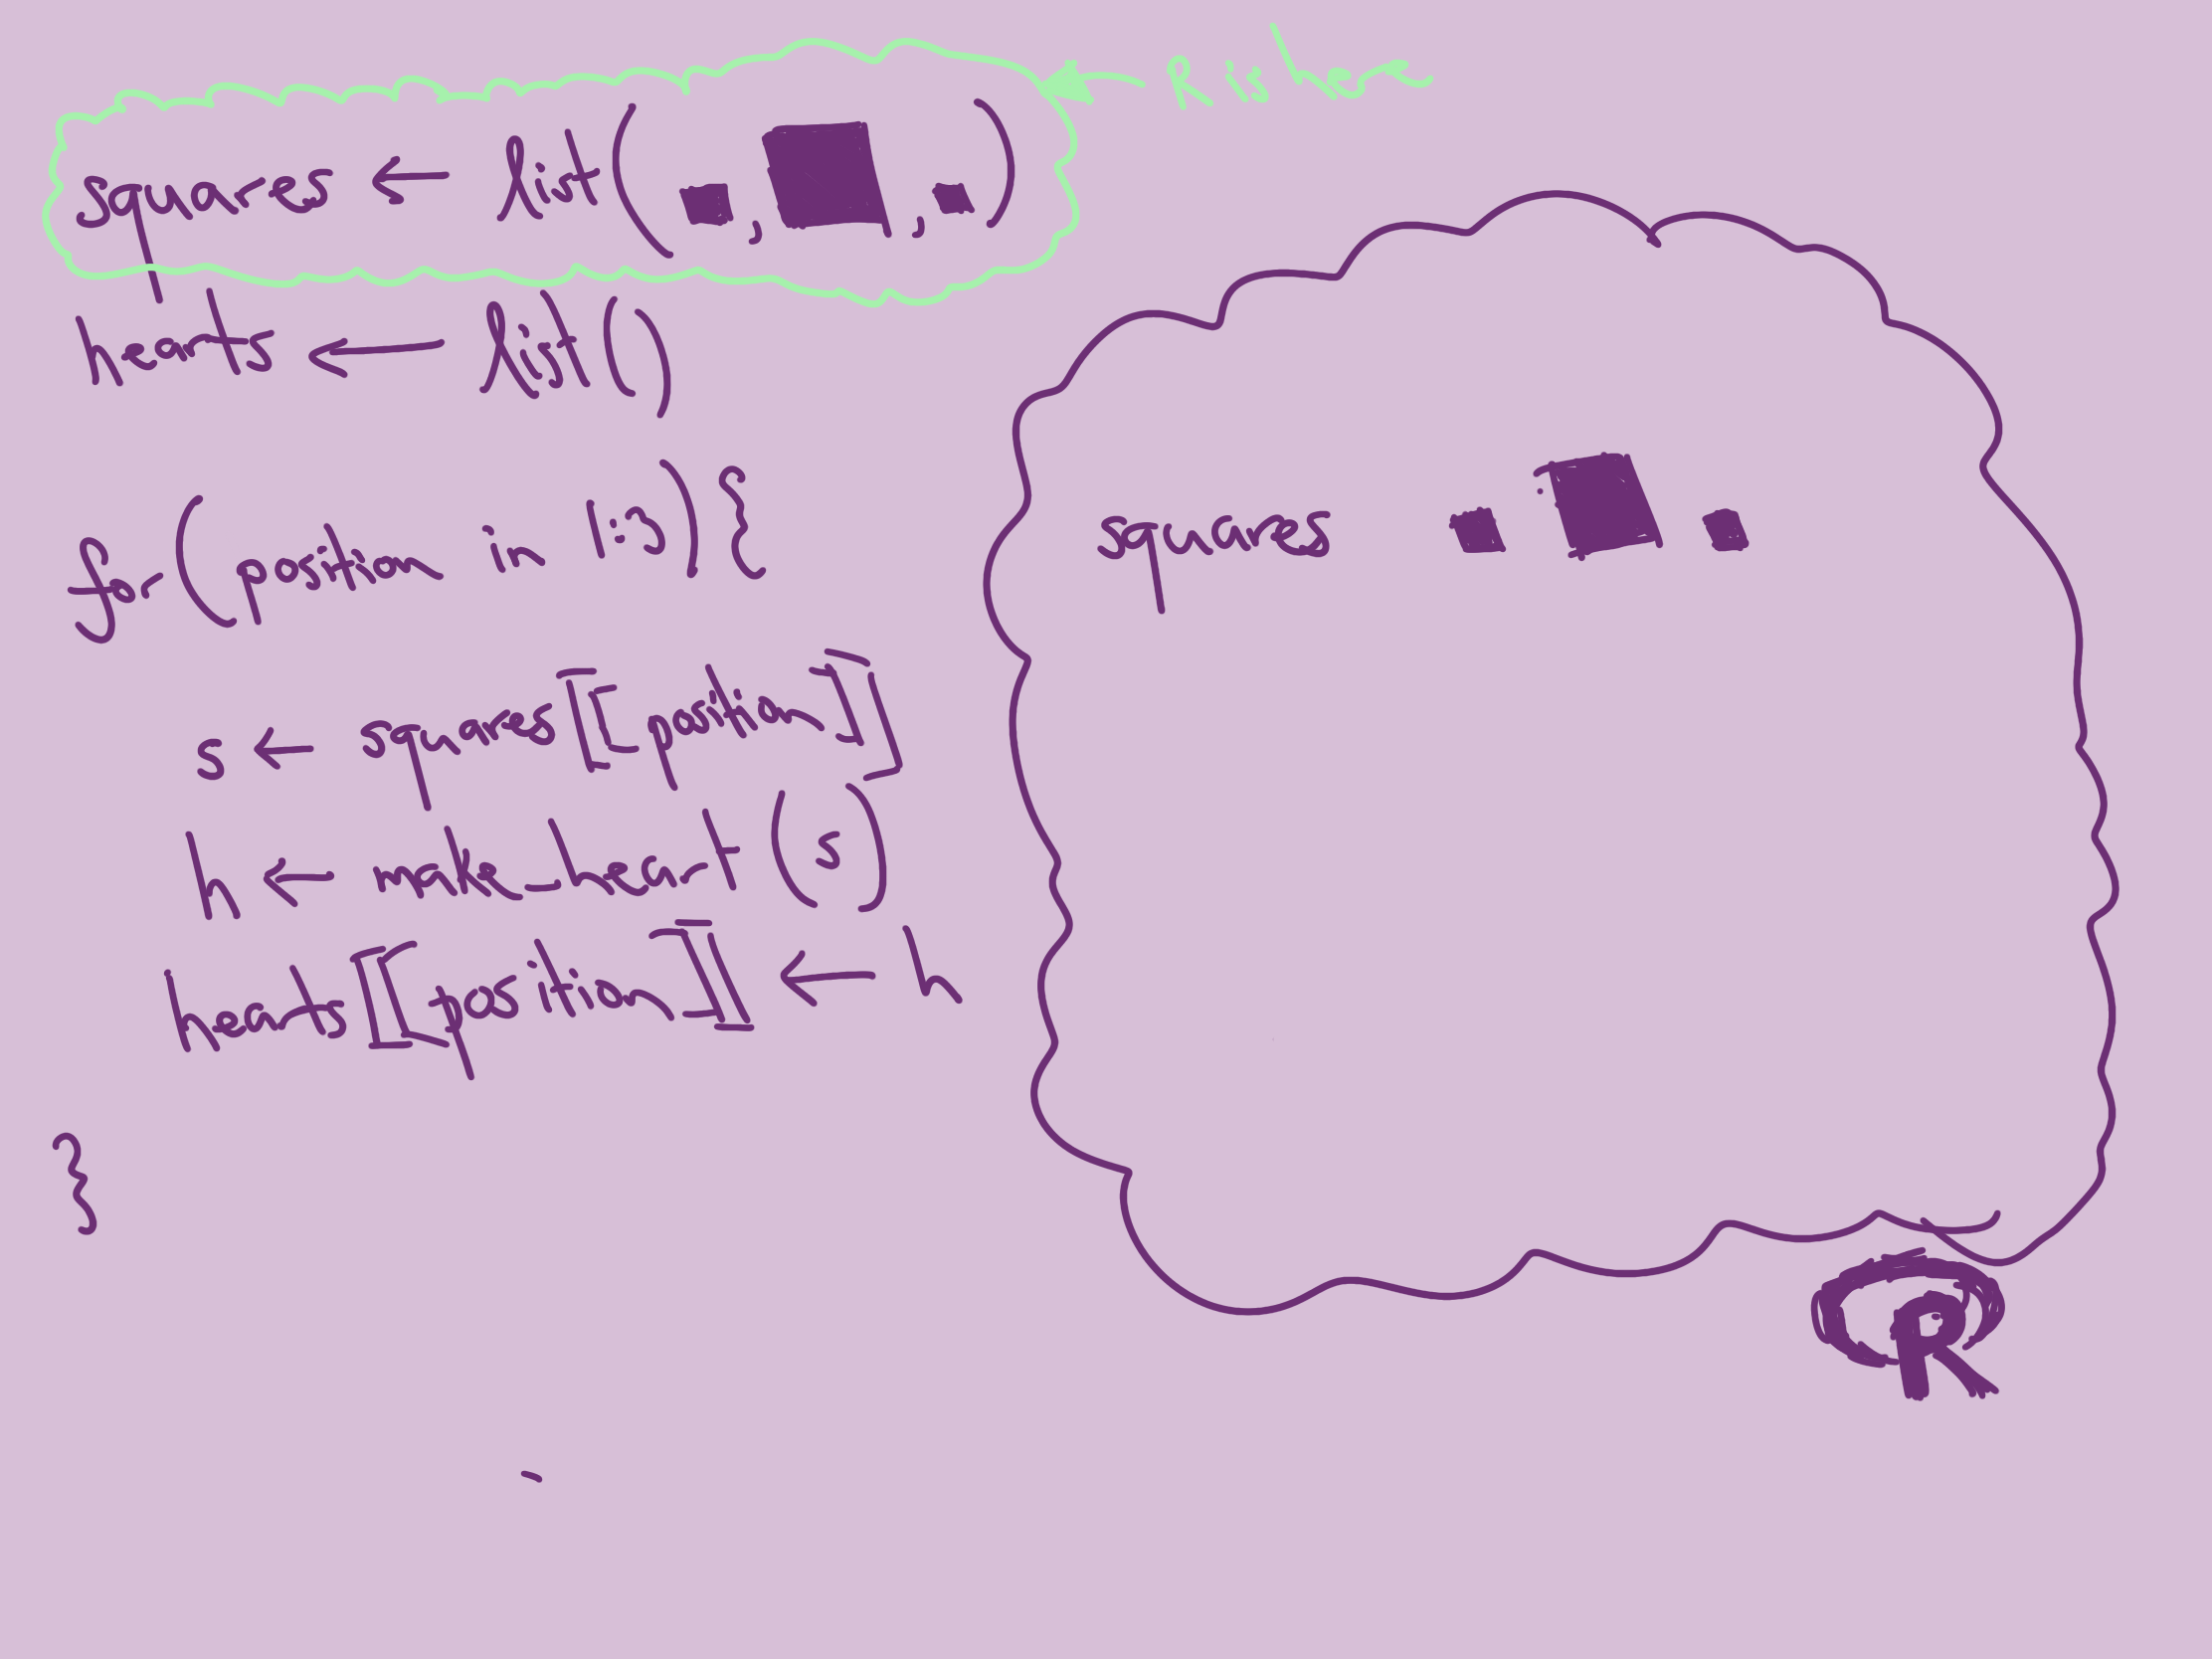 R is here
squares ← list( ■ , ■ , ■ )
hearts ← list()
for (position in 1:3) {
s ← squares[[position]]
h ← make_heart(s)
hearts[[position]] ← h
}
squares ■ ■ ■
R